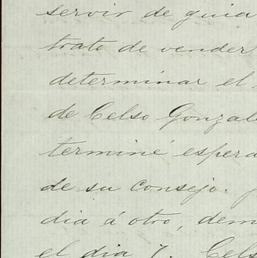 servir de guia
trato de vender
determinar el
de Celso Gonzal
terminé espera
de su consejo.
dia á otro, dem
el dia 7. Cels